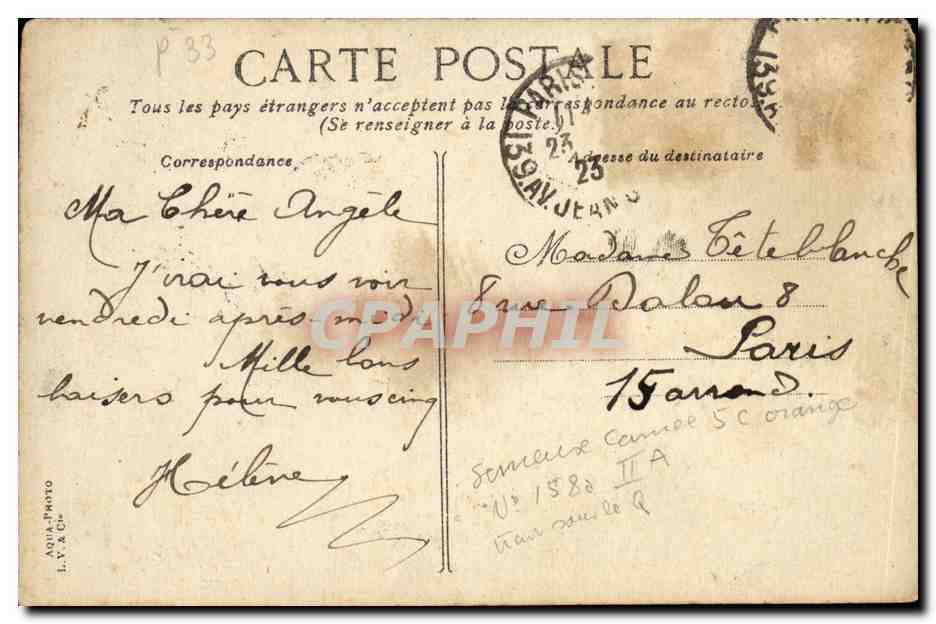 P 33
CARTE POSTALE
Tous les pays étrangers n'acceptent pas la correspondance au recto.
(Se renseigner à la poste.)
Correspondance
Ma Chère Angèle
J'irai vous voir
vendredi après-midi
Mille bons
baisers pour vous cinq
Hélène
AQUA-PHOTO
L. V. & Cie
PARIS
23
23
139. AV. JEAN
139. A
Adresse du destinataire
Madame Têteblanche
8 rue Dalou 8
Paris
15 arrond.
Semeuse Camée 5 c orange
No 158a II A
trait sous le Q
CPAPHIL